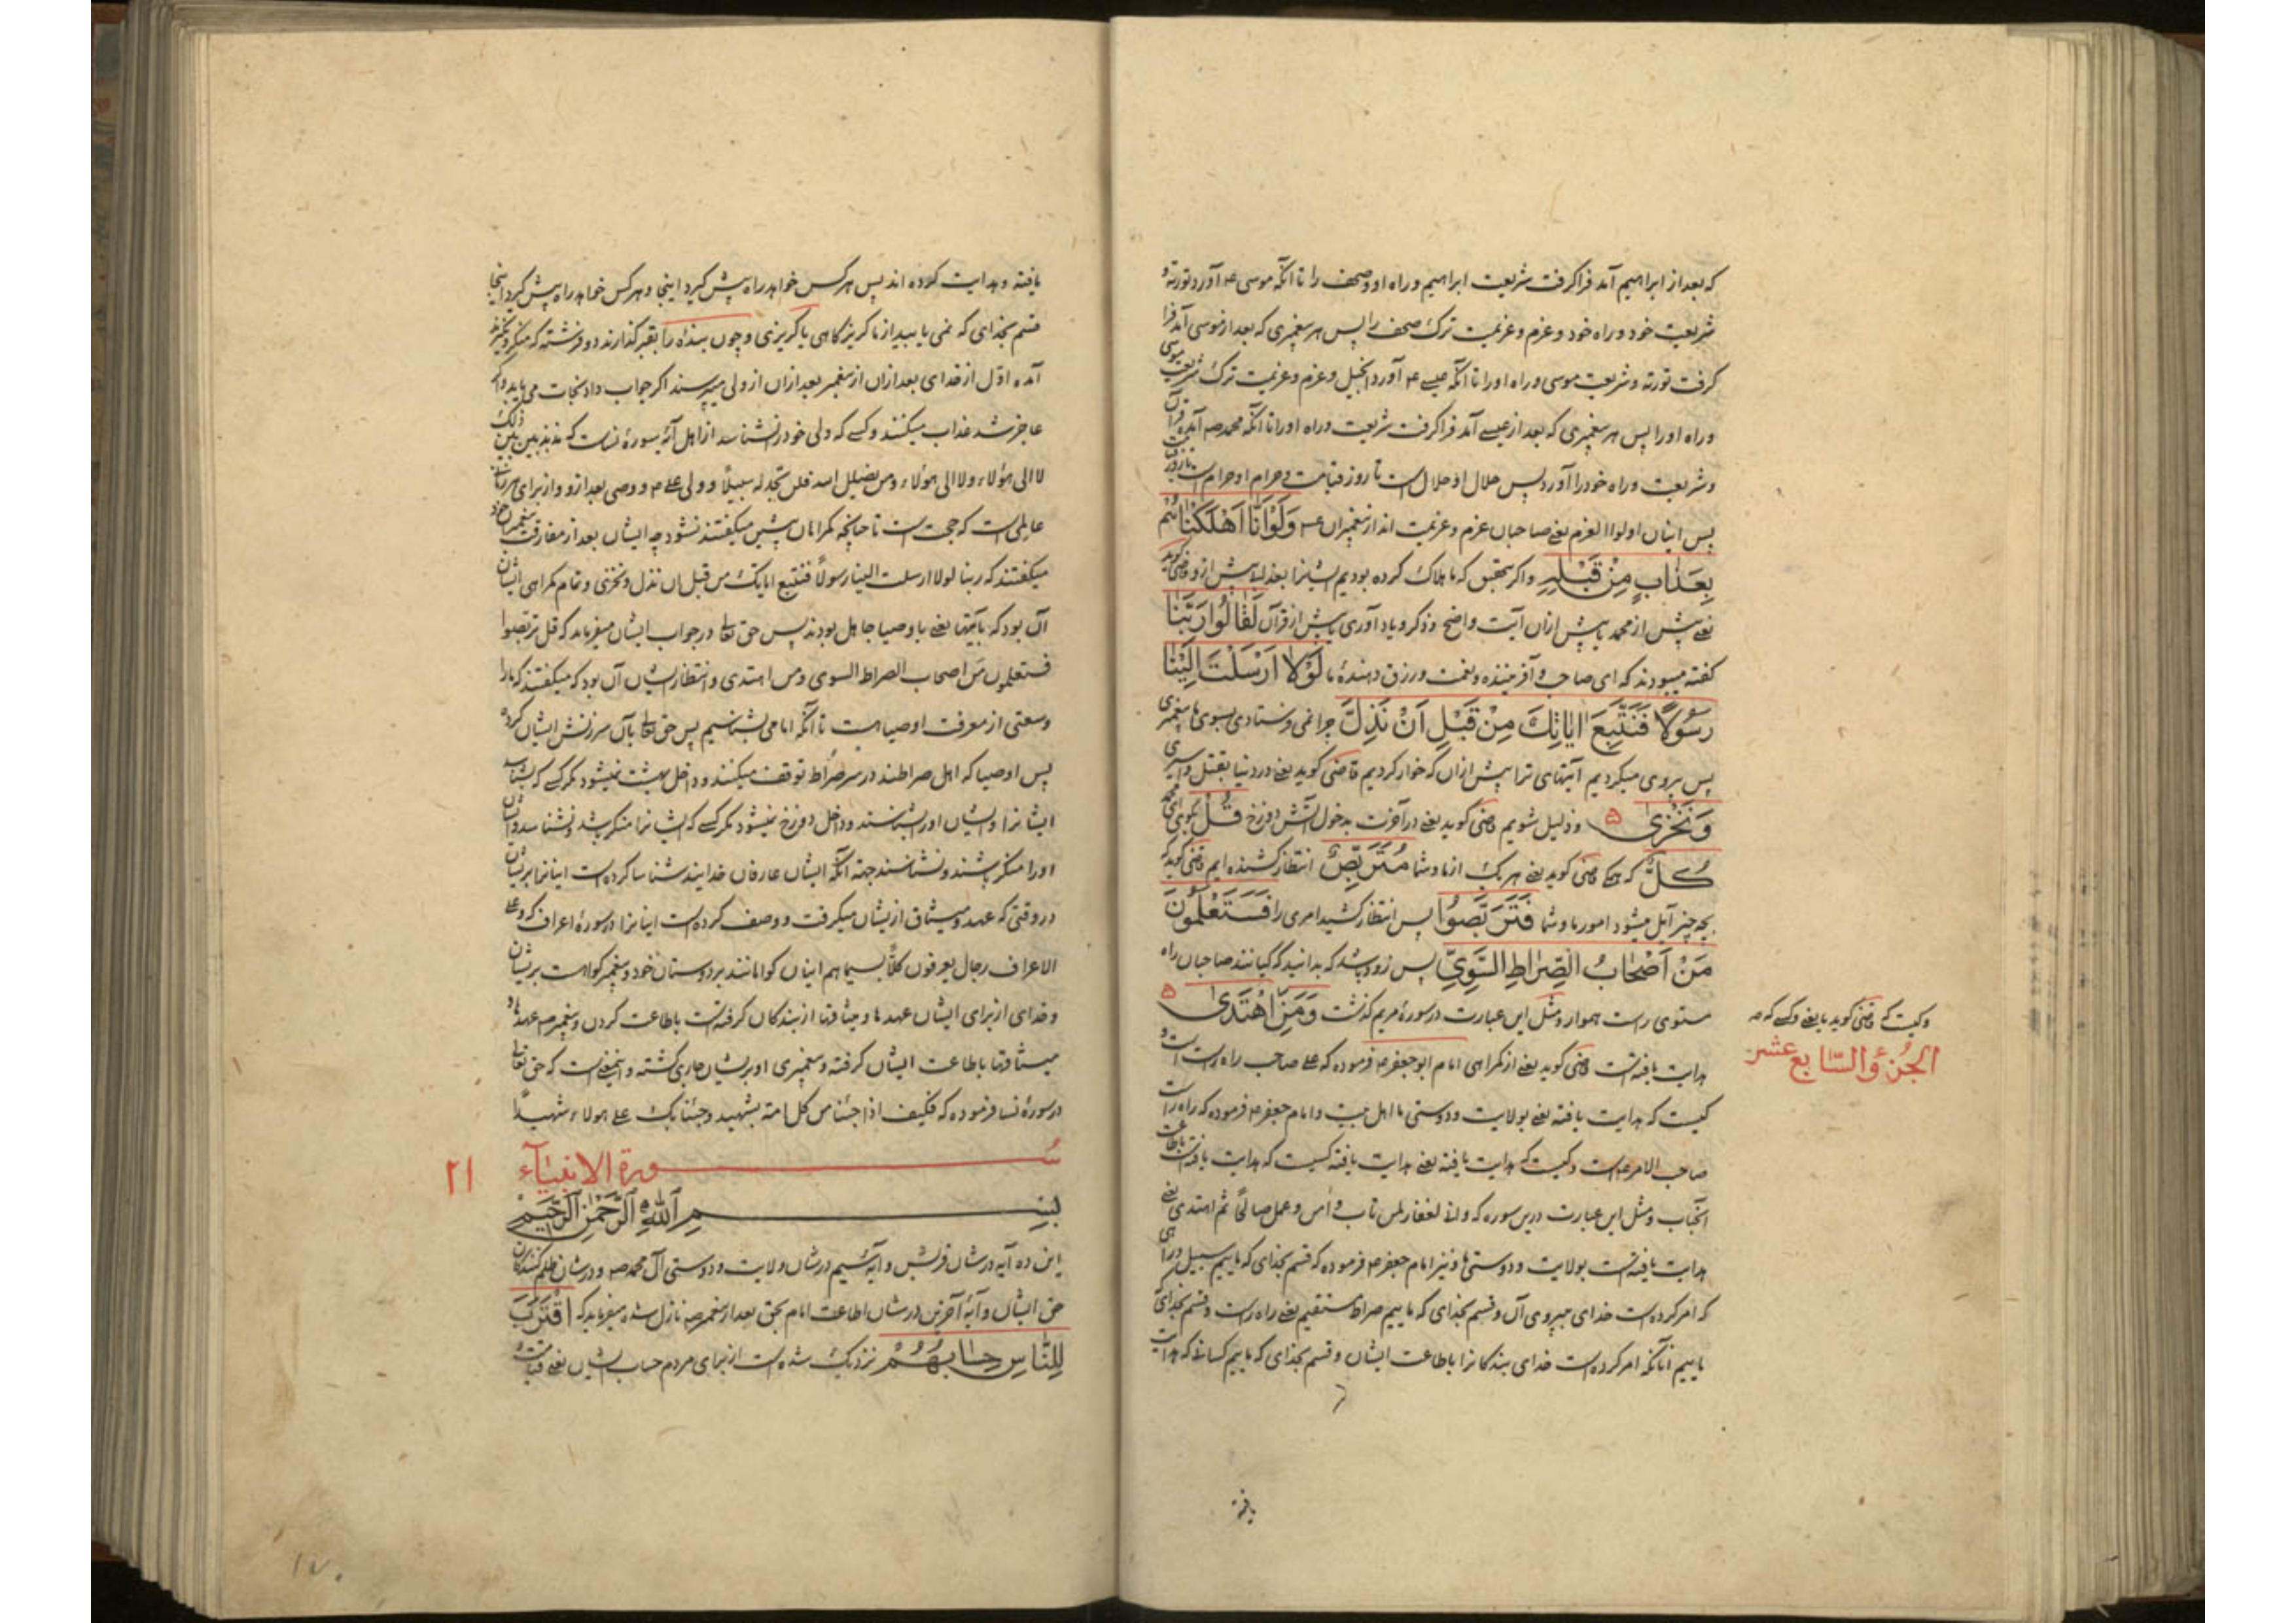 که بعد از ابراهیم آمد فرا کرفت شریعت ابراهیم و راه او و صحف را تا آنکه موسی ع آورد تورته و
شریعت خود و راه خود و عزم و عزیمت ترک صحف را پس هر پیغمبری که بعد از موسی آمد فرا
کرفت تورته و شریعت موسی و راه او را تا آنکه عیسے ع آورد انجیل و عزم و عزیمت ترک شریعت موسی
و راه او را پس هر پیغمبری که بعد از عیسے آمد فرا کرفت شریعت و راه او را تا آنکه محمد صه آمد قرآن
و شریعت و راه خود را آورد پس حلال او حلال است تا روز قیامت و حرام او حرام است تا روز
پس اینان اولوا العزم یعنے صاحبان عزم و عزیمت اند از پیغمبران ع وَلَوْ اَنّٰا اَهْلَكْنٰاهُمْ
بِعَذٰابٍ مِنْ قَبْلِهِ و اکر بتحقیق که ما هلاک کرده بودیم ایشانرا بعذابے پیش از و قاضی کوید
یعنے پیش از محمد یا پیش ازان آیت واضح و ذکر و یاد آوری یا پیش از قرآن لَقٰالُوا رَبَّنٰا
کفته میبودند که ای صاحب و آفریننده و نعمت و رزق دهندهٔ ما لَوْلٰا اَرْسَلْتَ اِلَيْنٰا
رَسُولًا فَنَتَّبِعَ اٰيٰاتِكَ مِنْ قَبْلِ اَنْ نَذِلَّ چرا نمی فرستادی بسوی ما پیغمبری
پس پیروی میکردیم آیتهای ترا پیش ازان که خوار کردیم قاضی کوید یعنے در دنیا بقتل و اسیری
وَنَخْزىٰ ۵ و ذلیل شویم قاضی کوید یعنے در آخرت بدخول آتش دوزخ قُلْ بکوی ای محمد
كُلٌّ که همه قاضی کوید یعنے هر یک از ما و شما مُتَرَبِّصٌ انتظار کشنده ایم قاضی کوید که
بچه چیز آیل میشود امور ما و شما فَتَرَبَّصُوا پس انتظار کشید امری را فَسَتَعْلَمُونَ
مَنْ اَصْحٰابُ الصِّرٰاطِ السَّوِيِّ پس زود باشد که بدانید که کیانند صاحبان راه
مستوی راست هموار و مثل این عبارت در سورهٔ مریم کذشت وَمَنِ اهْتَدىٰ ۵
و کیست که قاضی کوید یا یعنے و کسے که صه
الجُزءُ السّابع عشر
هدایت یافته است قاضی کوید یعنے از کمراهی امام ابو جعفر ع فرموده که علے صاحب راه راست است و
کیست که هدایت یافته یعنے بولایت و دوستی ما اهل بیت و امام جعفر ع فرموده که راه راست
صاحب الامر ع است و کیست که هدایت یافته یعنے هدایت یافته کسیت که هدایت یافته است باطاعت
آنجناب و مثل این عبارت درین سوره که و انی لغفار لمن تاب و آمن و عمل صالحًا ثم اهتدی یعنے
هدایت یافته است بولایت و دوستی ما و نیز امام جعفر ع فرموده که قسم بخدای که ماییم سبیل و راهی
که امر کرده است خدای بپیروی آن و قسم بخدای که ماییم صراط مستقیم یعنے راه راست و قسم بخدای که
ماییم آنانکه امر کرده است خدای بندکانرا باطاعت ایشان و قسم بخدای که ماییم کسانے که هدایت
یافته
یافته و هدایت کرده اند پس هر کس خواهد راه پیش کیرد اینجا و هر کس خواهد راه پیش کیرد اینجا
قسم بخدای که نمی یابید از ما کریزکاهی یا کریزی و چون بنده را بقبر کذارند دو فرشته که منکر و نکیرند
آمده اوّل از خدای بعد ازان از پیغمبر بعد ازان از ولی میپرسند اکر جواب داد نجات می یابد و اکر
عاجز شد عذاب میکنند و کسے که ولی خود را نشناسد از اهل آیهٔ سورهٔ نساست که مذبذبین بین ذلک
لا الی هؤلاء ولا الی هؤلاء و من یضلل الله فلن تجد له سبیلًا و ولی علے ع و وصی بعد ازو و از برای هر زمانے
عالمی است که حجت است تا چنانچه کمراهان پیشین میکفتند نشود چه ایشان بعد از مفارقت پیغمبران خود
میکفتند که ربنا لولا ارسلت الینا رسولًا فنتبع ایاتک من قبل ان نذل و نخزی و تمام کمراهی ایشان
آن بود که بآیتها یعنے باوصیا جاهل بودند پس حق تعالی در جواب ایشان میفرماید که قل تربصوا
فستعلمون من اصحاب الصراط السوی و من اهتدی و انتظار ایشان آن بود که میکفتند که ما را
وسعتی از معرفت اوصیا هست تا آنکه امامی بشناسیم پس حق تعالی بآن سرزنش ایشان کرده
پس اوصیا که اهل صراطند در سر صراط توقف میکنند و داخل بهشت نمیشود مکر کسے که بشناسد
ایشانرا و ایشان او را بشناسند و داخل دوزخ نمیشود مکر کسے که ایشانرا منکر باشد و نشناسد و ایشان
او را منکر باشند و نشناسند جهة آنکه ایشان عارفان خدایند شناسا کرده است اینانرا بر ایشان
در وقتی که عهد و میثاق از ایشان میکرفت و وصف کرده است اینانرا در سورهٔ اعراف که و علے
الاعراف رجال یعرفون کلًا بسیماهم اینان کواهانند بر دوستان خود و پیغمبر کواهست بر ایشان
و خدای از برای ایشان عهدها و میثاقها از بندکان کرفته است باطاعت کردن و پیغمبر صه عهدها و
میثاقها باطاعت ایشان کرفته و پیغمبری او بر ایشان جاری کشته و اینمعنے است که حق تعالی
در سورهٔ نسا فرموده که فکیف اذا جئنا من کل امة بشهید و جئنا بک علے هولاء شهیدًا
سورة الانبیآء ۲۱
بِسْمِ اللهِ الرَّحْمٰنِ الرَّحِيْمِ
این ده آیه در شان قریش و آیهٔ سیم در شان ولایت و دوستی آل محمد صه و در شان ظلم کنندکان
حق ایشان و آیهٔ آخرین در شان اطاعت امام بحق بعد از پیغمبر صه نازل شده میفرماید که اِقْتَرَبَ
لِلنّٰاسِ حِسٰابُهُمْ نزدیک شده است از برای مردم حساب ایشان یعنے قیامت و
۱۷۰